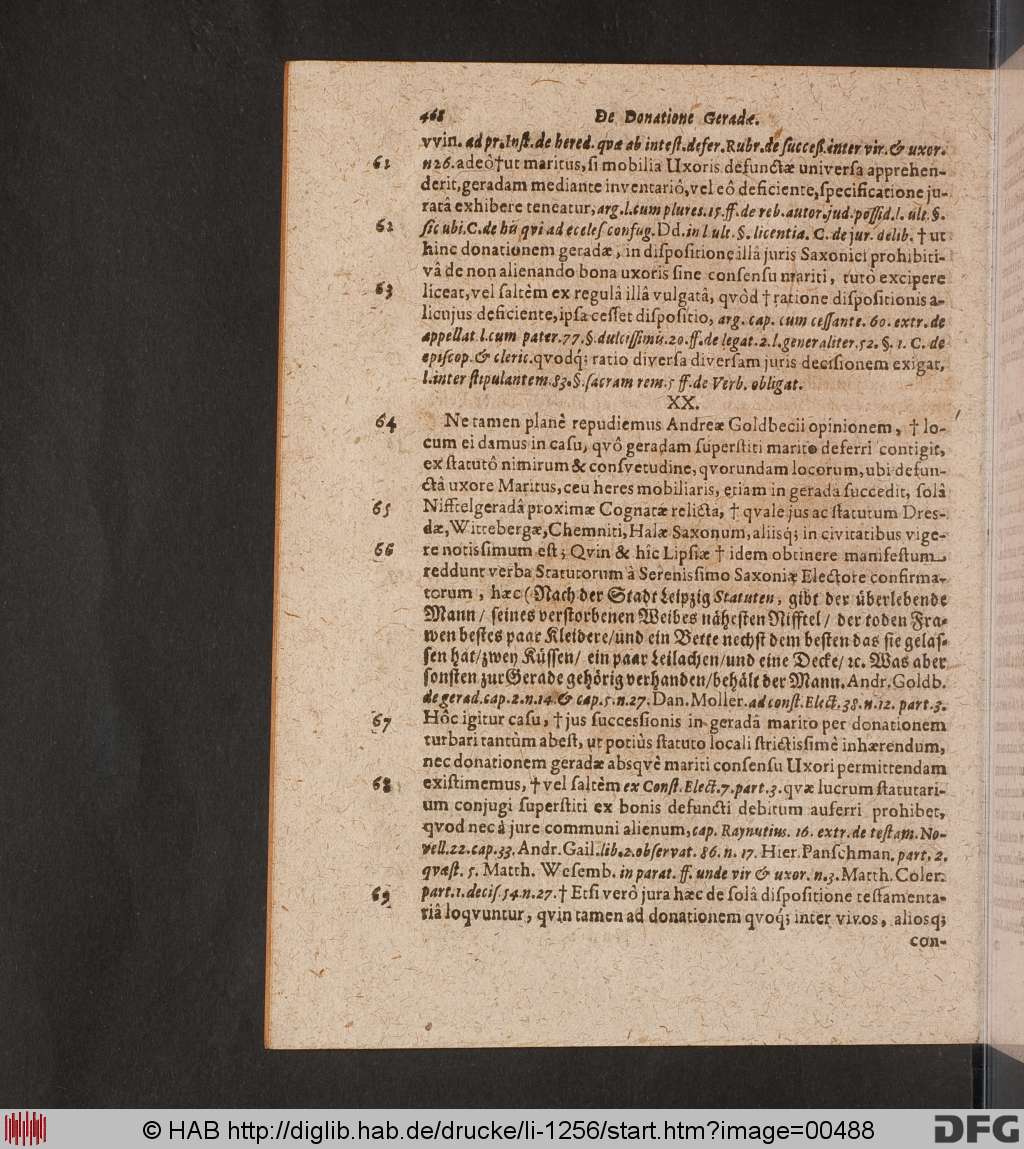 468 De Donatione Geradæ.
vvin. ad pr. Inst. de hered. qvæ ab intest. defer. Rubr. de success. inter vir. & uxor.
61 n 26. adeò † ut maritus, si mobilia Uxoris defunctæ universa apprehen-
derit, geradam mediante inventariô, vel eô deficiente, specificatione ju-
ratâ exhibere teneatur, arg. l. cum plures. 15. ff. de reb. autor. jud. possid. l. ult. §.
62 sic ubi. C. de his qvi ad eccles confug. Dd. in l ult. §. licentia. C. de jur. delib. † ut
hinc donationem geradæ, in dispositione illâ juris Saxonici prohibiti-
vâ de non alienando bona uxoris sine consensu mariti, tutò excipere
63 liceat, vel saltèm ex regulâ illâ vulgatâ, qvòd † ratione dispositionis a-
licujus deficiente, ipsa cesset dispositio, arg. cap. cum cessante. 60. extr. de
appellat. l. cum pater. 77. §. dulcissimis. 20. ff. de legat. 2. l. generaliter. 52. §. 1. C. de
episcop. & cleric. qvodq; ratio diversa diversam juris decisionem exigat,
l. inter stipulantem. 83. §. sacram rem. 5 ff. de Verb. obligat.
XX.
64 Ne tamen planè repudiemus Andreæ Goldbecii opinionem, † lo-
cum ei damus in casu, qvô geradam superstiti marito deferri contigit,
ex statutô nimirum & consvetudine, qvorundam locorum, ubi defun-
ctâ uxore Maritus, ceu heres mobiliaris, etiam in geradâ succedit, solâ
65 Nifftelgeradâ proximæ Cognatæ relicta, † qvale jus ac statutum Dres-
dæ, Wittebergæ, Chemniti, Halæ Saxonum, aliisq; in civitatibus vige-
66 re notissimum est; Qvin & hîc Lipsiæ † idem obtinere manifestum
reddunt verba Statutorum â Serenissimo Saxoniæ Electore confirma-
torum, hæc (Nach der Stadt Leipzig Statuten, gibt der überlebende
Mann / seines verstorbenen Weibes nähesten Nifftel / der toden Fra-
wen bestes paar Kleidere/und ein Bette nechst dem besten das sie gelas-
sen hat/zwey Küssen/ ein paar Leilachen/und eine Decke/ ꝛc. Was aber
sonsten zur Gerade gehörig verhanden/behält der Mann. Andr. Goldb.
de gerad. cap. 2. n. 14. & cap. 5. n. 27. Dan. Moller. ad const. Elect. 38. n. 12. part. 3.
67 Hôc igitur casu, † jus successionis in geradâ marito per donationem
turbari tantùm abest, ut potiùs statuto locali strictissimè inhærendum,
nec donationem geradæ absqvè mariti consensu Uxori permittendam
68 existimemus, † vel saltèm ex Const. Elect. 7. part. 3. qvæ lucrum statutari-
um conjugi superstiti ex bonis defuncti debitum auferri prohibet,
qvod nec â jure communi alienum, cap. Raynutius. 16. extr. de testam. No-
vell. 22. cap. 33. Andr. Gail. lib. 2. observat. 86. n. 17. Hier. Panschman. part. 2.
qvæst. 5. Matth. Wesemb. in parat. ff. unde vir & uxor. n. 3. Matth. Coler.
69 part. 1. decis. 54. n. 27. † Etsi verò jura hæc de solâ dispositione testamenta-
riâ loqvuntur, qvin tamen ad donationem qvoq; inter vivos, aliosq;
con-
© HAB http://diglib.hab.de/drucke/li-1256/start.htm?image=00488
DFG